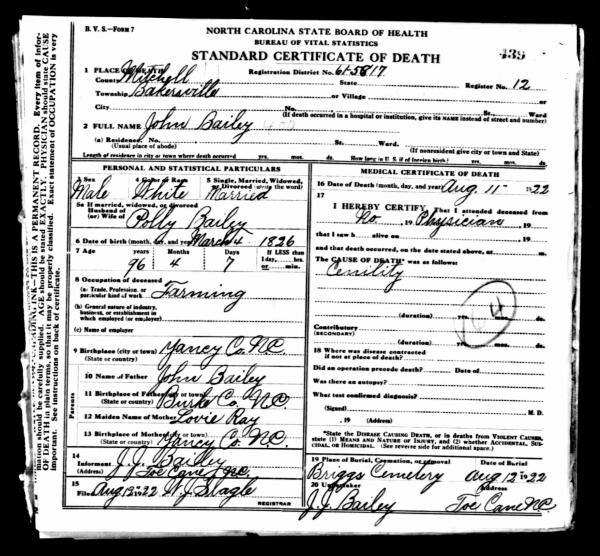 B. V. S.—Form 7
NORTH CAROLINA STATE BOARD OF HEALTH
BUREAU OF VITAL STATISTICS
STANDARD CERTIFICATE OF DEATH
439
1 PLACE OF DEATH
Registration District No. 61-5817
Register No. 12
County Mitchell State
Township Bakersville or Village or
City No. St. Ward
(If death occurred in a hospital or institution, give its NAME instead of street and number)
2 FULL NAME John Bailey
(a) Residence. No. St. Ward
(Usual place of abode) (If nonresident give city or town and State)
Length of residence in city or town where death occurred yrs. mos. ds. How long in U. S. if of foreign birth? yrs. mos. ds.
PERSONAL AND STATISTICAL PARTICULARS
3 Sex 4 Color or Race 5 Single, Married, Widowed, or Divorced (write the word)
Male White Married
5a If married, widowed, or divorced
Husband of
(or) Wife of Polly Bailey
6 Date of birth (month, day, and year) March 4 1826
7 Age years Months Days If LESS than 1 day, hrs. or min.
96 4 7
8 Occupation of deceased
(a) Trade, Profession, or particular kind of work Farming
(b) General nature of industry, business, or establishment in which employed (or employer)
(c) Name of employer
9 Birthplace (city or town) Yancy Co. N.C.
(State or country)
Parents
10 Name of Father John Bailey
11 Birthplace of Father (city or town) Burke Co. N.C.
(State or country)
12 Maiden Name of Mother Lovie Ray
13 Birthplace of Mother (city or town) Yancy Co. N.C.
(State or country)
14
Informant J. J. Bailey
(Address) Toe Cane N.C.
15
Filed Aug 12 1922
REGISTRAR
MEDICAL CERTIFICATE OF DEATH
16 Date of Death (month, day, and year) Aug 11 1922
17
I HEREBY CERTIFY, That I attended deceased from
No. 19 Physician, 19
that I saw h alive on 19
and that death occurred, on the date stated above, at m.
The CAUSE OF DEATH* was as follows:
Cenility
(duration) yrs. mos. ds.
164
Contributory
(SECONDARY)
(duration) yrs. mos. ds.
18 Where was disease contracted
if not at place of death?
Did an operation precede death? Date of
Was there an autopsy?
What test confirmed diagnosis?
(Signed) M. D.
, 19 (Address)
*State the DISEASE CAUSING DEATH, or in deaths from VIOLENT CAUSES, state (1) MEANS AND NATURE OF INJURY, and (2) whether ACCIDENTAL, SUICIDAL, or HOMICIDAL. (See reverse side for additional space.)
19 Place of Burial, Cremation, or removal Date of Burial
Briggs Cemetery Aug 12 1922
20 Undertaker Address
J. J. Bailey Toe Cane N.C.